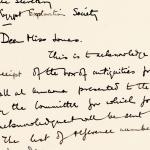 Egypt Exploration Society
Dear Miss Jonas.
This is to acknowledge
receipt of the box of antiquities fo
all al amarna presented to the
the Committee for which for
acknowledgment will be sent
The list of reference number